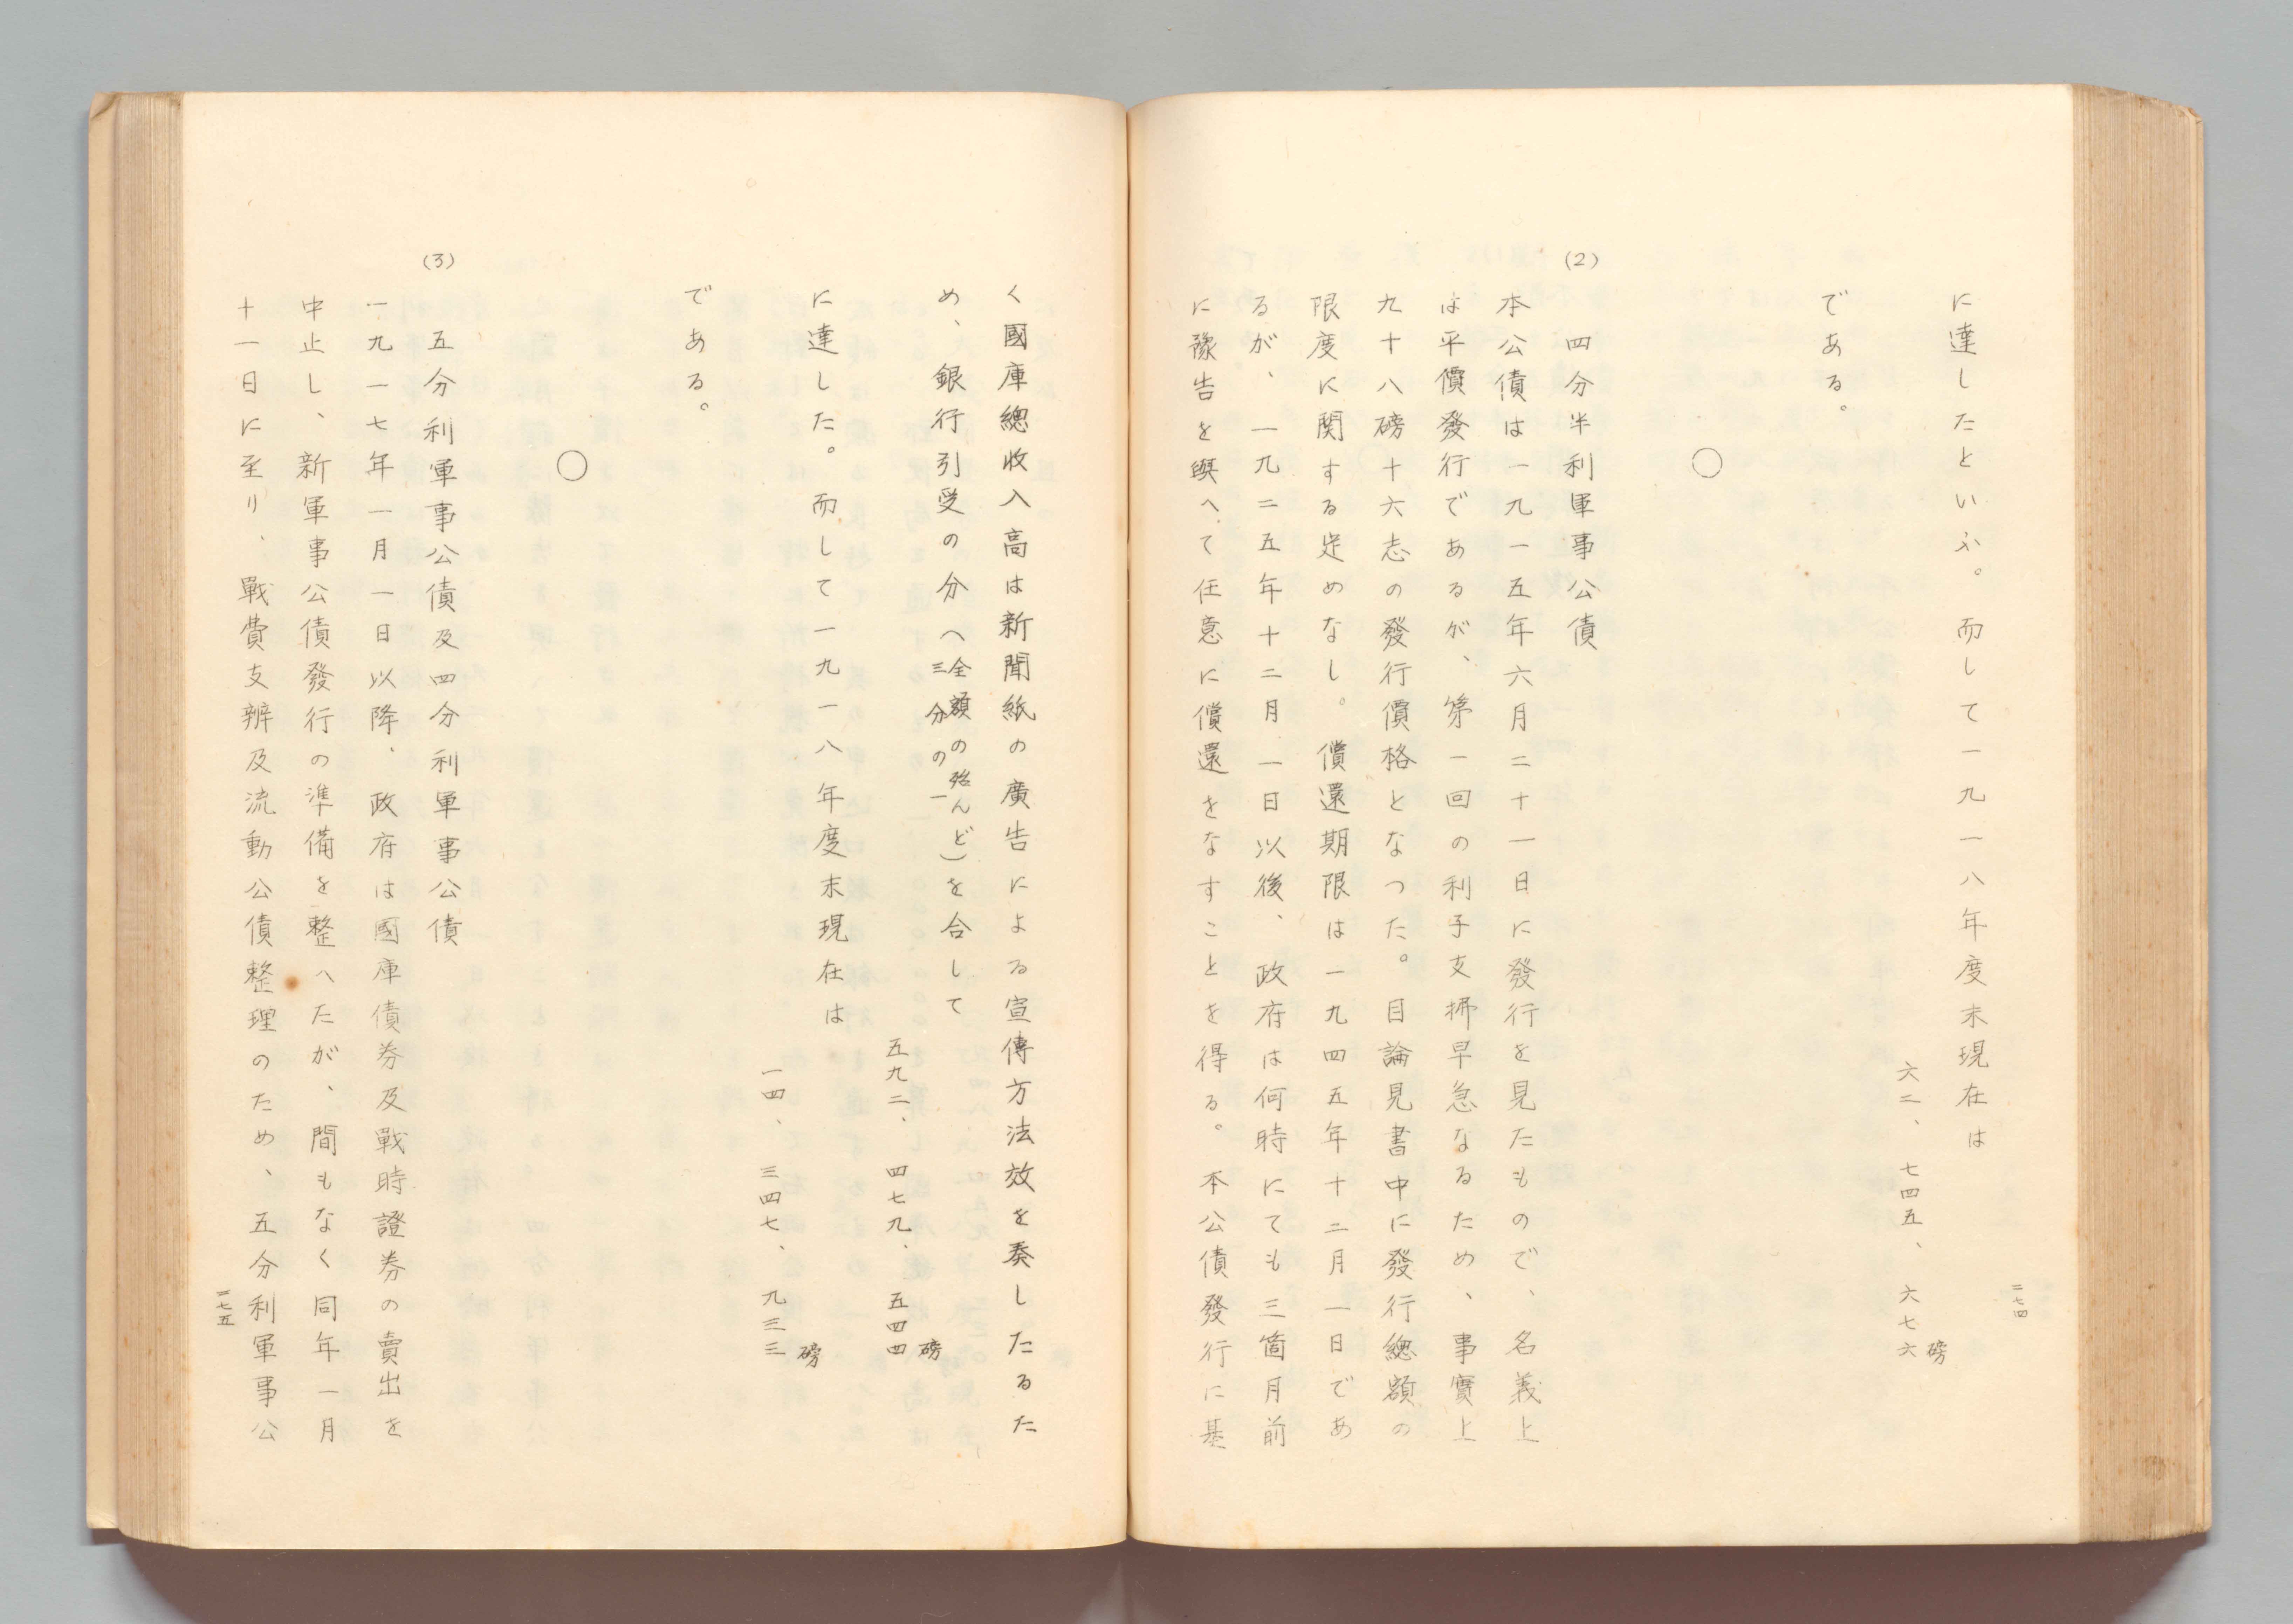 二七四
に達したといふ。而して一九一八年度末現在は
六二、七四五、六七六磅
である。
○
(2) 四分半利軍事公債
本公債は一九一五年六月二十一日に發行を見たもので、名義上
は平價發行であるが、第一回の利子支拂早急なるため、事實上
九十八磅十六志の發行價格となつた。目論見書中に發行總額の
限度に関する定めなし。償還期限は一九四五年十二月一日であ
るが、一九二五年十二月一日以後、政府は何時にても三箇月前
に豫告を與へて任意に償還をなすことを得る。本公債發行に基
く國庫總收入高は新聞紙の廣告による宣傳方法效を奏したるた
め、銀行引受の分(全額の殆んど三分の一)を合して
五九二、四七九、五四四磅
に達した。而して一九一八年度末現在は
一四、三四七、九三三磅
である。
○
(3) 五分利軍事公債及四分利軍事公債
一九一七年一月一日以降、政府は國庫債券及戰時證券の賣出を
中止し、新軍事公債發行の準備を整へたが、間もなく同年一月
十一日に至り、戰費支辨及流動公債整理のため、五分利軍事公
二七五